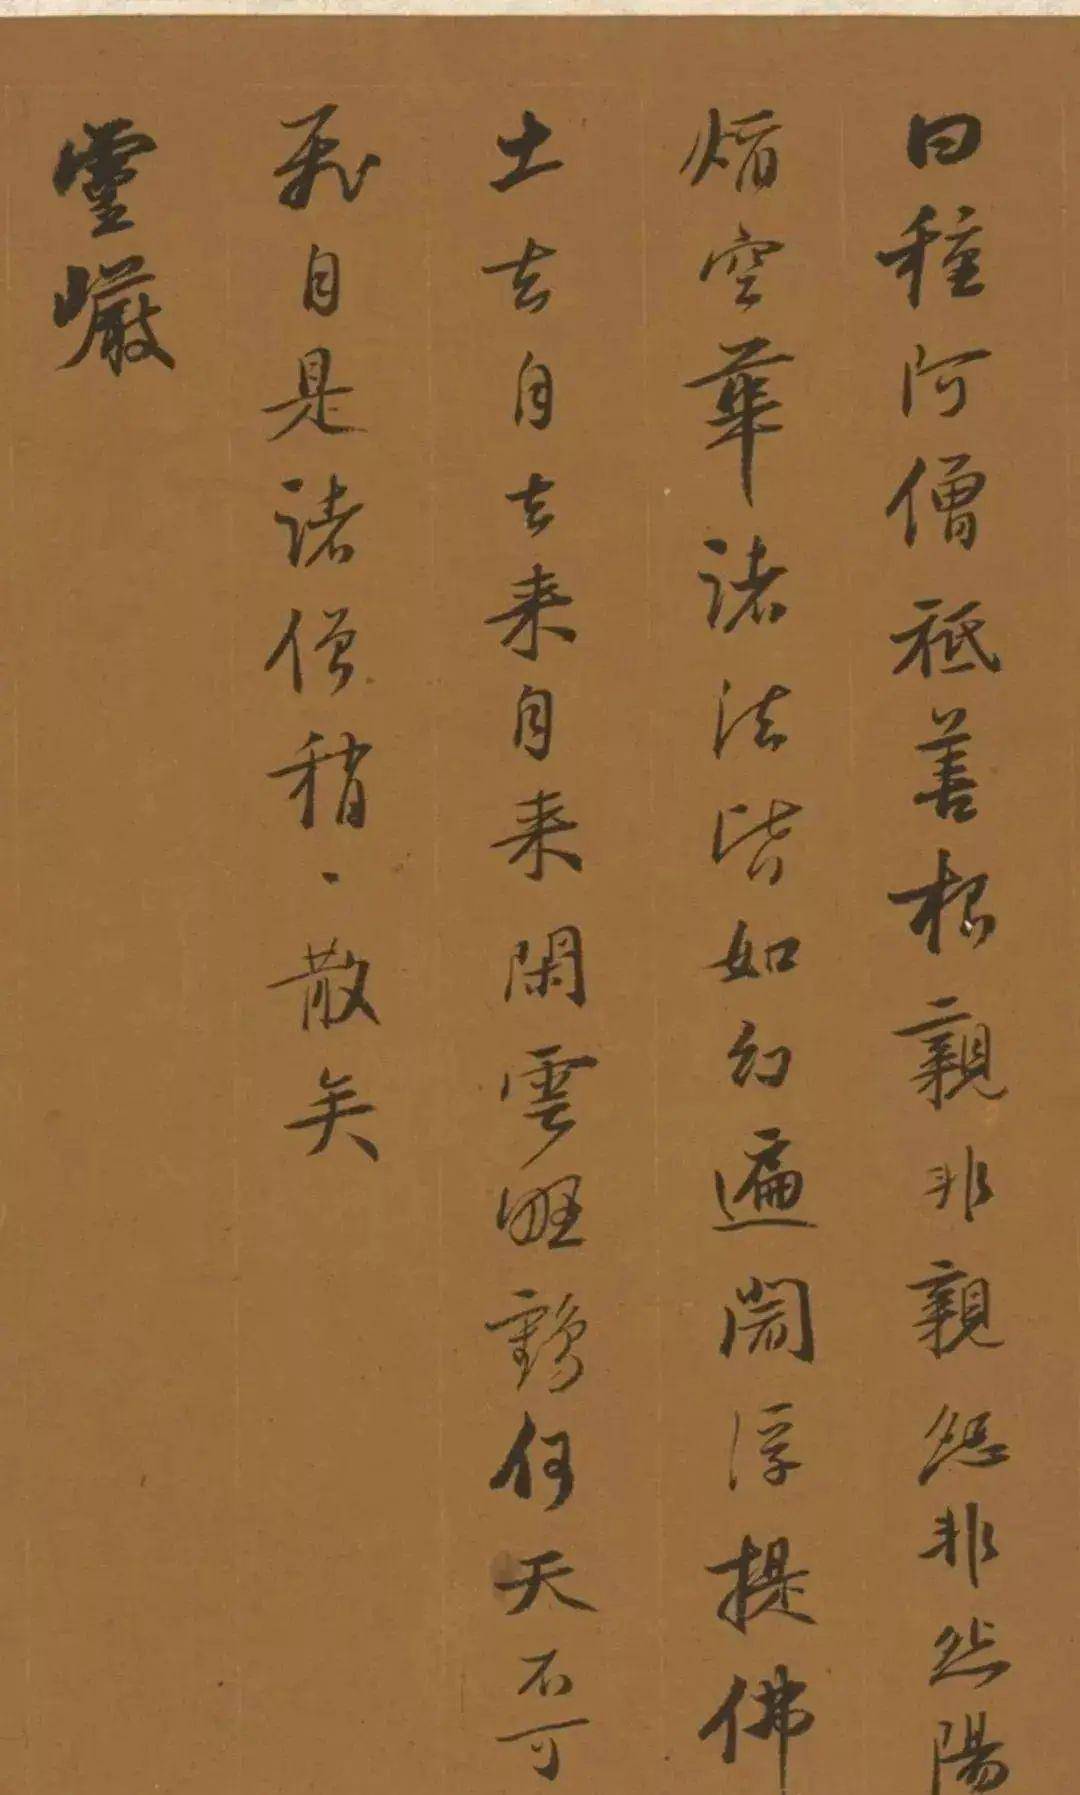 曰種阿僧祇善根親非親怨非怨陽
焰空華諸法皆如幻遍閻浮提佛
土去自去來自來閑雲野鶴何天不可
飛自是諸僧稍、散矣
靈巖